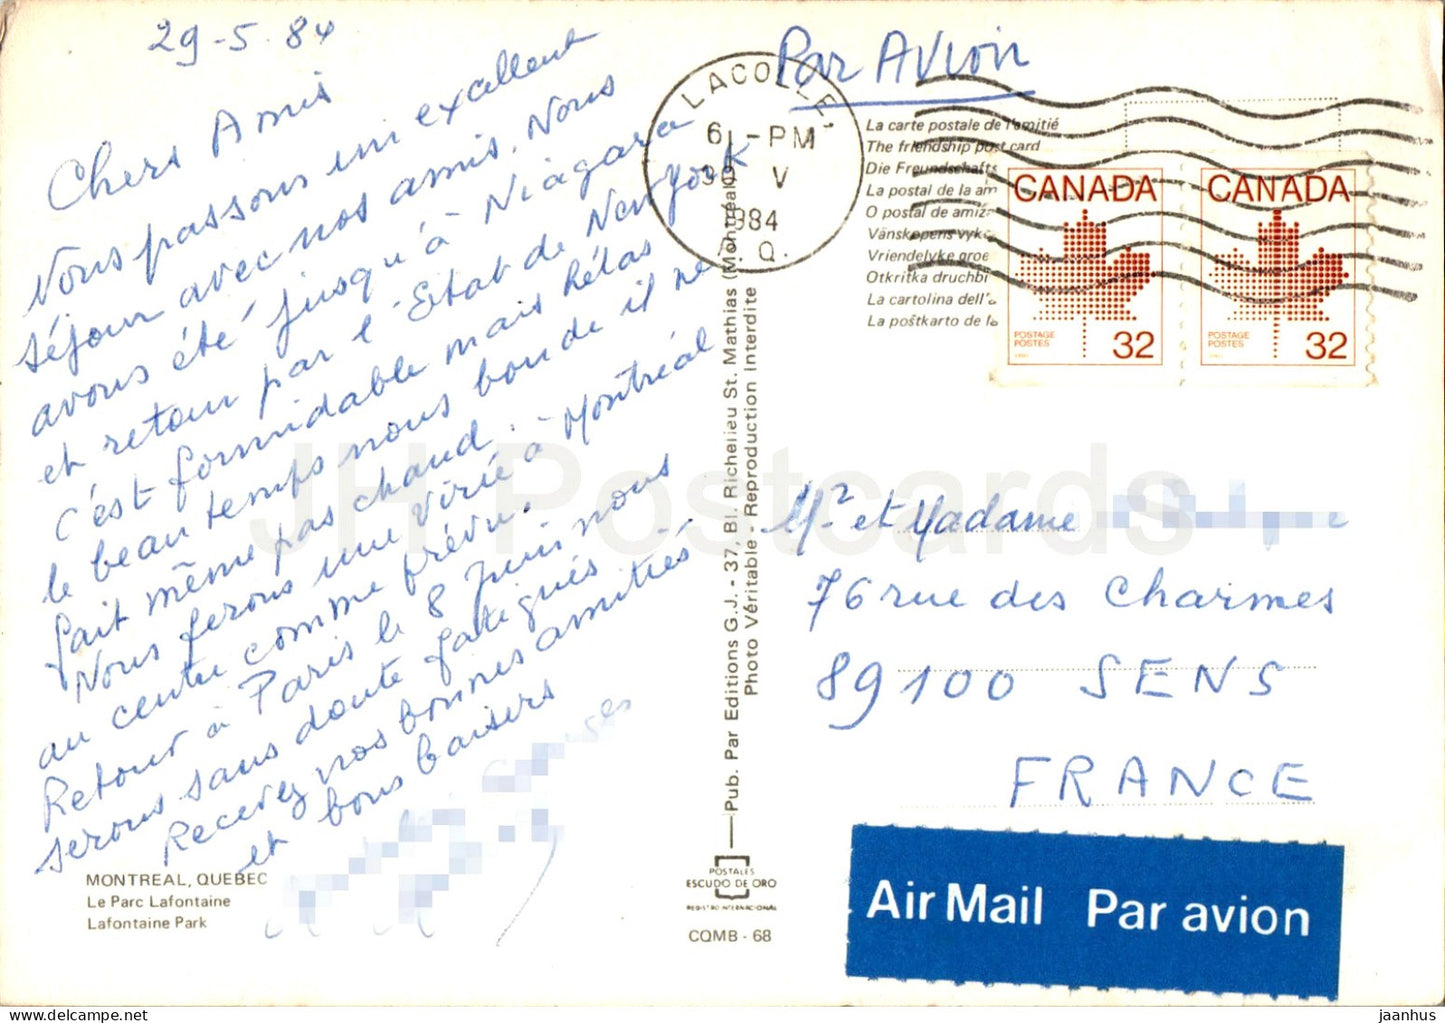 29-5-84
Chers Amis
Nous passons un excellent
séjour avec nos amis. Nous
avons été jusqu'à Niagara
et retour par l'-Etat de New York
c'est formidable mais hélas
le beau temps nous boude il ne
fait même pas chaud.
Nous ferons une virée à Montréal
au centre comme prévu.
Retour à Paris le 8 Juin nous
serons sans doute fatigués -
Recevez nos bonnes amitiés
et bons baisers
MONTREAL, QUEBEC
Le Parc Lafontaine
Lafontaine Park
Pub. Par Editions G.J. - 37, Bl. Richelieu St. Mathias (Montréal)
Photo Véritable - Reproduction Interdite
POSTALES
ESCUDO DE ORO
REGISTRO INTERNACIONAL
CQMB - 68
Par Avion
LACOLLE,
6 - PM
V
1984
P.Q.
La carte postale de l'amitié
The friendship post card
Die Freundschafts
La postal de la am
O postal de amiz
Vänskapens vyk
Vriendelyke groe
Otkritka druchbi
La cartolina dell'a
La poŝtkarto de la
CANADA
POSTAGE
POSTES
32
CANADA
POSTAGE
POSTES
32
Mr et Madame
76 rue des Charmes
89100 SENS
FRANCE
Air Mail Par avion
JH Postcards
jaanhus